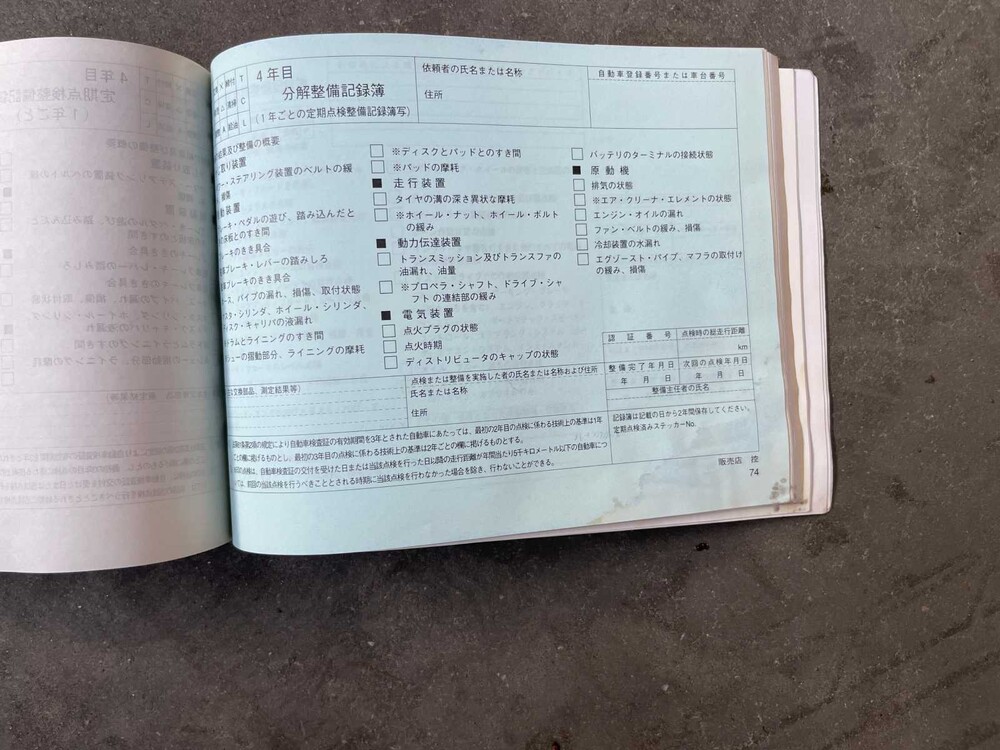 4年目
分解整備記録簿
(1年ごとの定期点検整備記録簿写)
依頼者の氏名または名称
住所
自動車登録番号または車台番号
締付 T
清掃 C
給油 L
及び整備の概要
取り装置
ステアリング装置のベルトの緩
損傷
装置
ーキ・ペダルの遊び、踏み込んだと
床板とのすき間
ーキのきき具合
ブレーキ・レバーの踏みしろ
ブレーキのきき具合
ース、パイプの漏れ、損傷、取付状態
スタ・シリンダ、ホイール・シリンダ、
ィスク・キャリパの液漏れ
ドラムとライニングのすき間
シューの摺動部分、ライニングの摩耗
□ ※ディスクとパッドとのすき間
□ ※パッドの摩耗
■ 走行装置
□ タイヤの溝の深さ異状な摩耗
□ ※ホイール・ナット、ホイール・ボルト
の緩み
■ 動力伝達装置
□ トランスミッション及びトランスファの
油漏れ、油量
□ ※プロペラ・シャフト、ドライブ・シャ
フトの連結部の緩み
■ 電気装置
□ 点火プラグの状態
□ 点火時期
□ ディストリビュータのキャップの状態
□ バッテリのターミナルの接続状態
■ 原動機
□ 排気の状態
□ ※エア・クリーナ・エレメントの状態
□ エンジン・オイルの漏れ
□ ファン・ベルトの緩み、損傷
□ 冷却装置の水漏れ
□ エグゾースト・パイプ、マフラの取付け
の緩み、損傷
交換部品、測定結果等)
点検または整備を実施した者の氏名または名称および住所
氏名または名称
住所
認証番号 点検時の総走行距離
km
整備完了年月日 次回の点検年月日
年 月 日 年 月 日
整備主任者の氏名
記録簿は記載の日から2年間保存してください。
定期点検済みステッカーNo.
第2項の規定により自動車検査証の有効期間を3年とされた自動車にあたっては、最初の2年目の点検に係わる技術上の基準は1年
ごとの欄に掲げるものとし、最初の3年目の点検に係わる技術上の基準は2年ごとの欄に掲げるものとする。
点検は、自動車検査証の交付を受けた日または当該点検を行った日以降の走行距離が年間当たり5千キロメートル以下の自動車につ
いては、前回の当該点検を行うべきこととされる時期に当該点検を行わなかった場合を除き、行わないことができる。
販売店 控
74